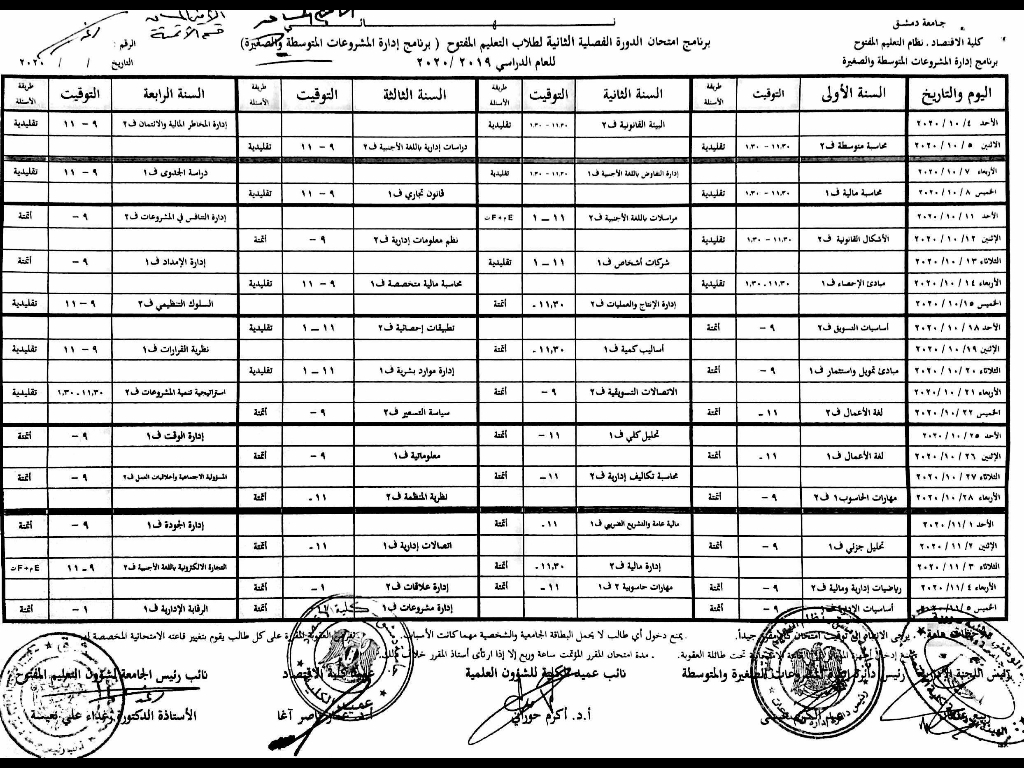 جامعة دمشق
كلية الاقتصاد . نظام التعليم المفتوح
برنامج إدارة المشروعات المتوسطة والصغيرة
برنامج امتحان الدورة الفصلية الثانية لطلاب التعليم المفتوح ( برنامج إدارة المشروعات المتوسطة والصغيرة)
للعام الدراسي ٢٠١٩ /٢٠٢٠
الرقم :
التاريخ / / ٢٠٢٠
اليوم والتاريخ السنة الأولى التوقيت طريقة الأسئلة السنة الثانية التوقيت طريقة الأسئلة السنة الثالثة التوقيت طريقة الأسئلة السنة الرابعة التوقيت طريقة الأسئلة
الأحد ٤/ ١٠ / ٢٠٢٠ البيئة القانونية ف٢ ١١,٣٠ - ١,٣٠ تقليدية إدارة المخاطر المالية والائتمان ف٢ ٩ - ١١ تقليدية
الاثنين ٥ / ١٠ / ٢٠٢٠ محاسبة متوسطة ف٢ ١١,٣٠ - ١,٣٠ تقليدية دراسات إدارية باللغة الأجنبية ف٢ ٩ - ١١ تقليدية
الأربعاء ٧ / ١٠ / ٢٠٢٠ إدارة التفاوض باللغة الأجنبية ف١ ١١,٣٠ - ١,٣٠ تقليدية دراسة الجدوى ف١ ٩ - ١١ تقليدية
الخميس ٨ / ١٠ / ٢٠٢٠ محاسبة مالية ف١ ١١,٣٠ - ١,٣٠ تقليدية قانون تجاري ف١ ٩ - ١١ تقليدية
الأحد ١١ / ١٠ / ٢٠٢٠ مراسلات باللغة الأجنبية ف٢ ١١ - ١ ت F+م E إدارة التنافس في المشروعات ف٢ ٩ - أتمتة
الإثنين ١٢ / ١٠ / ٢٠٢٠ الأشكال القانونية ف٢ ١١,٣٠ - ١,٣٠ تقليدية نظم معلومات إدارية ف٢ ٩ - أتمتة
الثلاثاء ١٣ / ١٠ / ٢٠٢٠ شركات أشخاص ف١ ١١ - ١ تقليدية إدارة الإمداد ف١ ٩ - أتمتة
الأربعاء ١٤ / ١٠ / ٢٠٢٠ مبادئ الإحصاء ف١ ١١,٣٠ - ١,٣٠ تقليدية محاسبة مالية متخصصة ف١ ٩ - ١١ تقليدية
الخميس ١٥/ ١٠ / ٢٠٢٠ إدارة الإنتاج والعمليات ف٢ ١١,٣٠ - أتمتة السلوك التنظيمي ف٢ ٩ - ١١ تقليدية
الأحد ١٨ / ١٠ / ٢٠٢٠ أساسيات التسويق ف٢ ٩ - أتمتة تطبيقات إحصائية ف٢ ١١ - ١ تقليدية
الإثنين ١٩ / ١٠ / ٢٠٢٠ أساليب كمية ف١ ١١,٣٠ - أتمتة نظرية القرارات ف١ ٩ - ١١ تقليدية
الثلاثاء ٢٠ / ١٠ / ٢٠٢٠ مبادئ تمويل واستثمار ف١ ٩ - أتمتة إدارة موارد بشرية ف١ ١١ - ١ تقليدية
الأربعاء ٢١ / ١٠ / ٢٠٢٠ الاتصالات التسويقية ف٢ ٩ - أتمتة استراتيجية تنمية المشروعات ف٢ ١١,٣٠ - ١,٣٠ تقليدية
الخميس ٢٢ / ١٠ / ٢٠٢٠ لغة الأعمال ف٢ ١١ - أتمتة سياسة التسعير ف٢ ٩ - أتمتة
الأحد ٢٥ / ١٠ / ٢٠٢٠ تحليل كلي ف١ ١١ - أتمتة إدارة الوقت ف١ ٩ - أتمتة
الإثنين ٢٦ / ١٠ / ٢٠٢٠ لغة الأعمال ف١ ١١ - أتمتة معلوماتية ف١ ٩ - أتمتة
الثلاثاء ٢٧ / ١٠ / ٢٠٢٠ محاسبة تكاليف إدارية ف٢ ١١ - أتمتة المسؤولية الاجتماعية واخلاقيات العمل ف٢ ٩ - أتمتة
الأربعاء ٢٨ / ١٠ / ٢٠٢٠ مهارات الحاسوب١ ف٢ ٩ - أتمتة نظرية المنظمة ف٢ ١١ - أتمتة
الأحد ١ / ١١ / ٢٠٢٠ مالية عامة والتشريع الضريبي ف١ ١١ - أتمتة إدارة الجودة ف١ ٩ - أتمتة
الإثنين ٢ / ١١ / ٢٠٢٠ تحليل جزئي ف١ ٩ - أتمتة اتصالات إدارية ف١ ١١ - أتمتة
الثلاثاء ٣ / ١١ / ٢٠٢٠ إدارة مالية ف٢ ١١,٣٠ - أتمتة التجارة الالكترونية باللغة الأجنبية ف٢ ٩ - ١١ ت F+م E
الأربعاء ٤ / ١١ / ٢٠٢٠ رياضيات إدارية ومالية ف٢ ٩ - أتمتة مهارات حاسوبية ٢ ف١ ١١ - أتمتة إدارة علاقات ف٢ ١ - أتمتة
الخميس ٥ / ١١ / ٢٠٢٠ أساسيات الإدارة ف١ ٩ - أتمتة إدارة مشروعات ف١ أتمتة الرقابة الإدارية ف١ ١ - أتمتة
. يرجى الانتباه إلى توقيت امتحان كل مقرر جيداً. . يمنع دخول أي طالب لا يحمل البطاقة الجامعية والشخصية مهما كانت الأسباب على كل طالب يقوم بتغيير قاعته الامتحانية المخصصة له
تحت طائلة العقوبة. . مدة امتحان المقرر المؤتمت ساعة وربع إلا إذا ارتأى أستاذ المقرر خلاف ذلك.
رئيس دائرة إدارة المشروعات الصغيرة والمتوسطة
نائب عميد الكلية للشؤون العلمية
أ.د. أكرم حوراني
عميد كلية الاقتصاد
أ.د. عمار ناصر آغا
نائب رئيس الجامعة لشؤون التعليم المفتوح
الأستاذة الدكتورة رغداء علي نعيسة